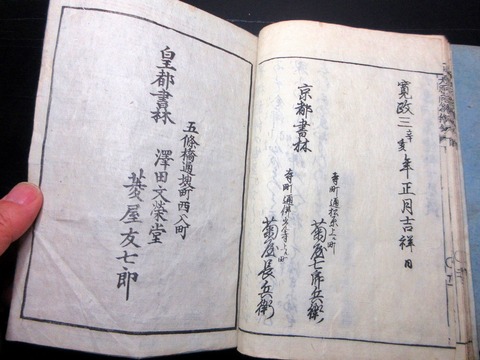 寛政三辛亥年正月吉祥日
京都書林
寺町通松原上ル町
菊屋七郎兵衛
寺町通佛光寺上ル町
菊屋長兵衛
皇都書林
五條橋通堺町西入町
澤田文榮堂
菱屋友七郎